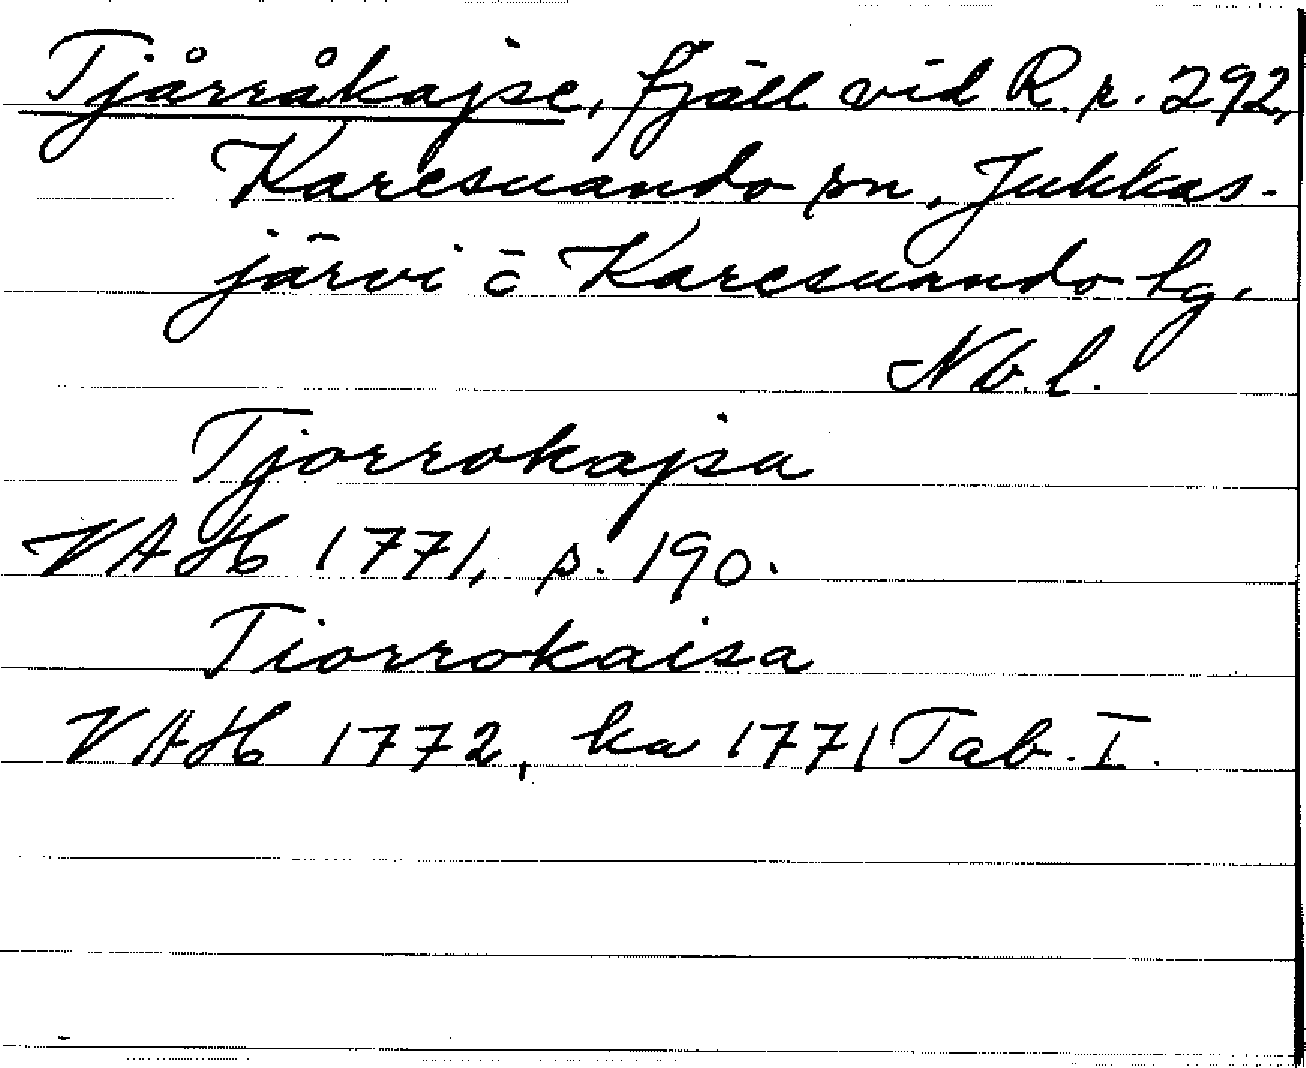 Tjårråkajse, fjäll vid R. r. 292,
Karesuando sn, Jukkas-
järvi o Karesuando lg,
Nb. l.
Tjorrokajsa
VAH 1771, s. 190.
Tiorrokaisa
VAH 1772, ka 1771 Tab. I.